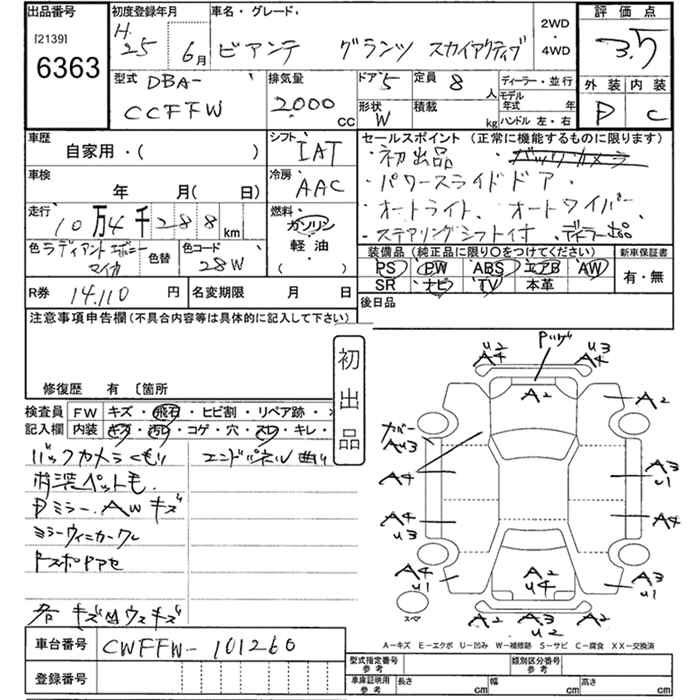 出品番号
[2139]
6363
初度登録年月
H. 25 6月
車名・グレード
ビアンテ グランツ スカイアクティブ
2WD
・
4WD
評価点
3.5
型式 DBA-
CCFFW
排気量
2000 cc
ドア 5
定員 8 人
形状 W
積載 kg
ディーラー・並行
モデル年式 年
ハンドル 左・右
外装 内装
D C
車歴
自家用・( )
シフト IAT
車検
年 月( 日)
冷房 AAC
セールスポイント (正常に機能するものに限ります)
・初出品 ・バックカメラ
・パワースライドドア.
・オートライト、オートワイパー
・ステアリングシフト付 ディーラー出品
走行 10万4千288km
燃料 ガソリン
軽油
( )
色 ラディアントエボニーマイカ
色替
色コード 28W
装備品 (純正品に限り○をつけてください)
PS PW ABS エアB AW
SR ナビ TV 本革
新車保証書
有・無
R券 14,110円
名変期限 月 日
後日品
注意事項申告欄(不具合内容等は具体的に記入して下さい)
修復歴 有 〔箇所
初出品
検査員記入欄
FW キズ・飛石・ヒビ割・リペア跡・
内装 キズ・汚れ・コゲ・穴・スレ・キレ・
バックカメラくもり エンドパネル曲り
内装ペット毛.
Dミラー.AWキズ
ミラーウィンカーワレ
ドアスポPアセ
各キズ凹ウスキズ
Pハゲ
U2
A4
U3
A4
A2
A2
カバー
AU3
A4
A3
U1
A4
U3
A4
A4
U1
A2
U4
A3
U1
スペア
A2 A3 A2
U2
A－キズ E－エクボ U－凹み W－補修跡 S－サビ C－腐食 XX－交換済
車台番号 CWFFW-101260
登録番号
型式指定番号 参考
類別区分番号 参考
車庫証明用 参考
長さ cm 幅 cm 高さ cm